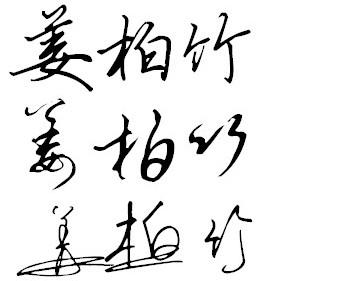 姜柏竹
姜柏竹
姜柏竹